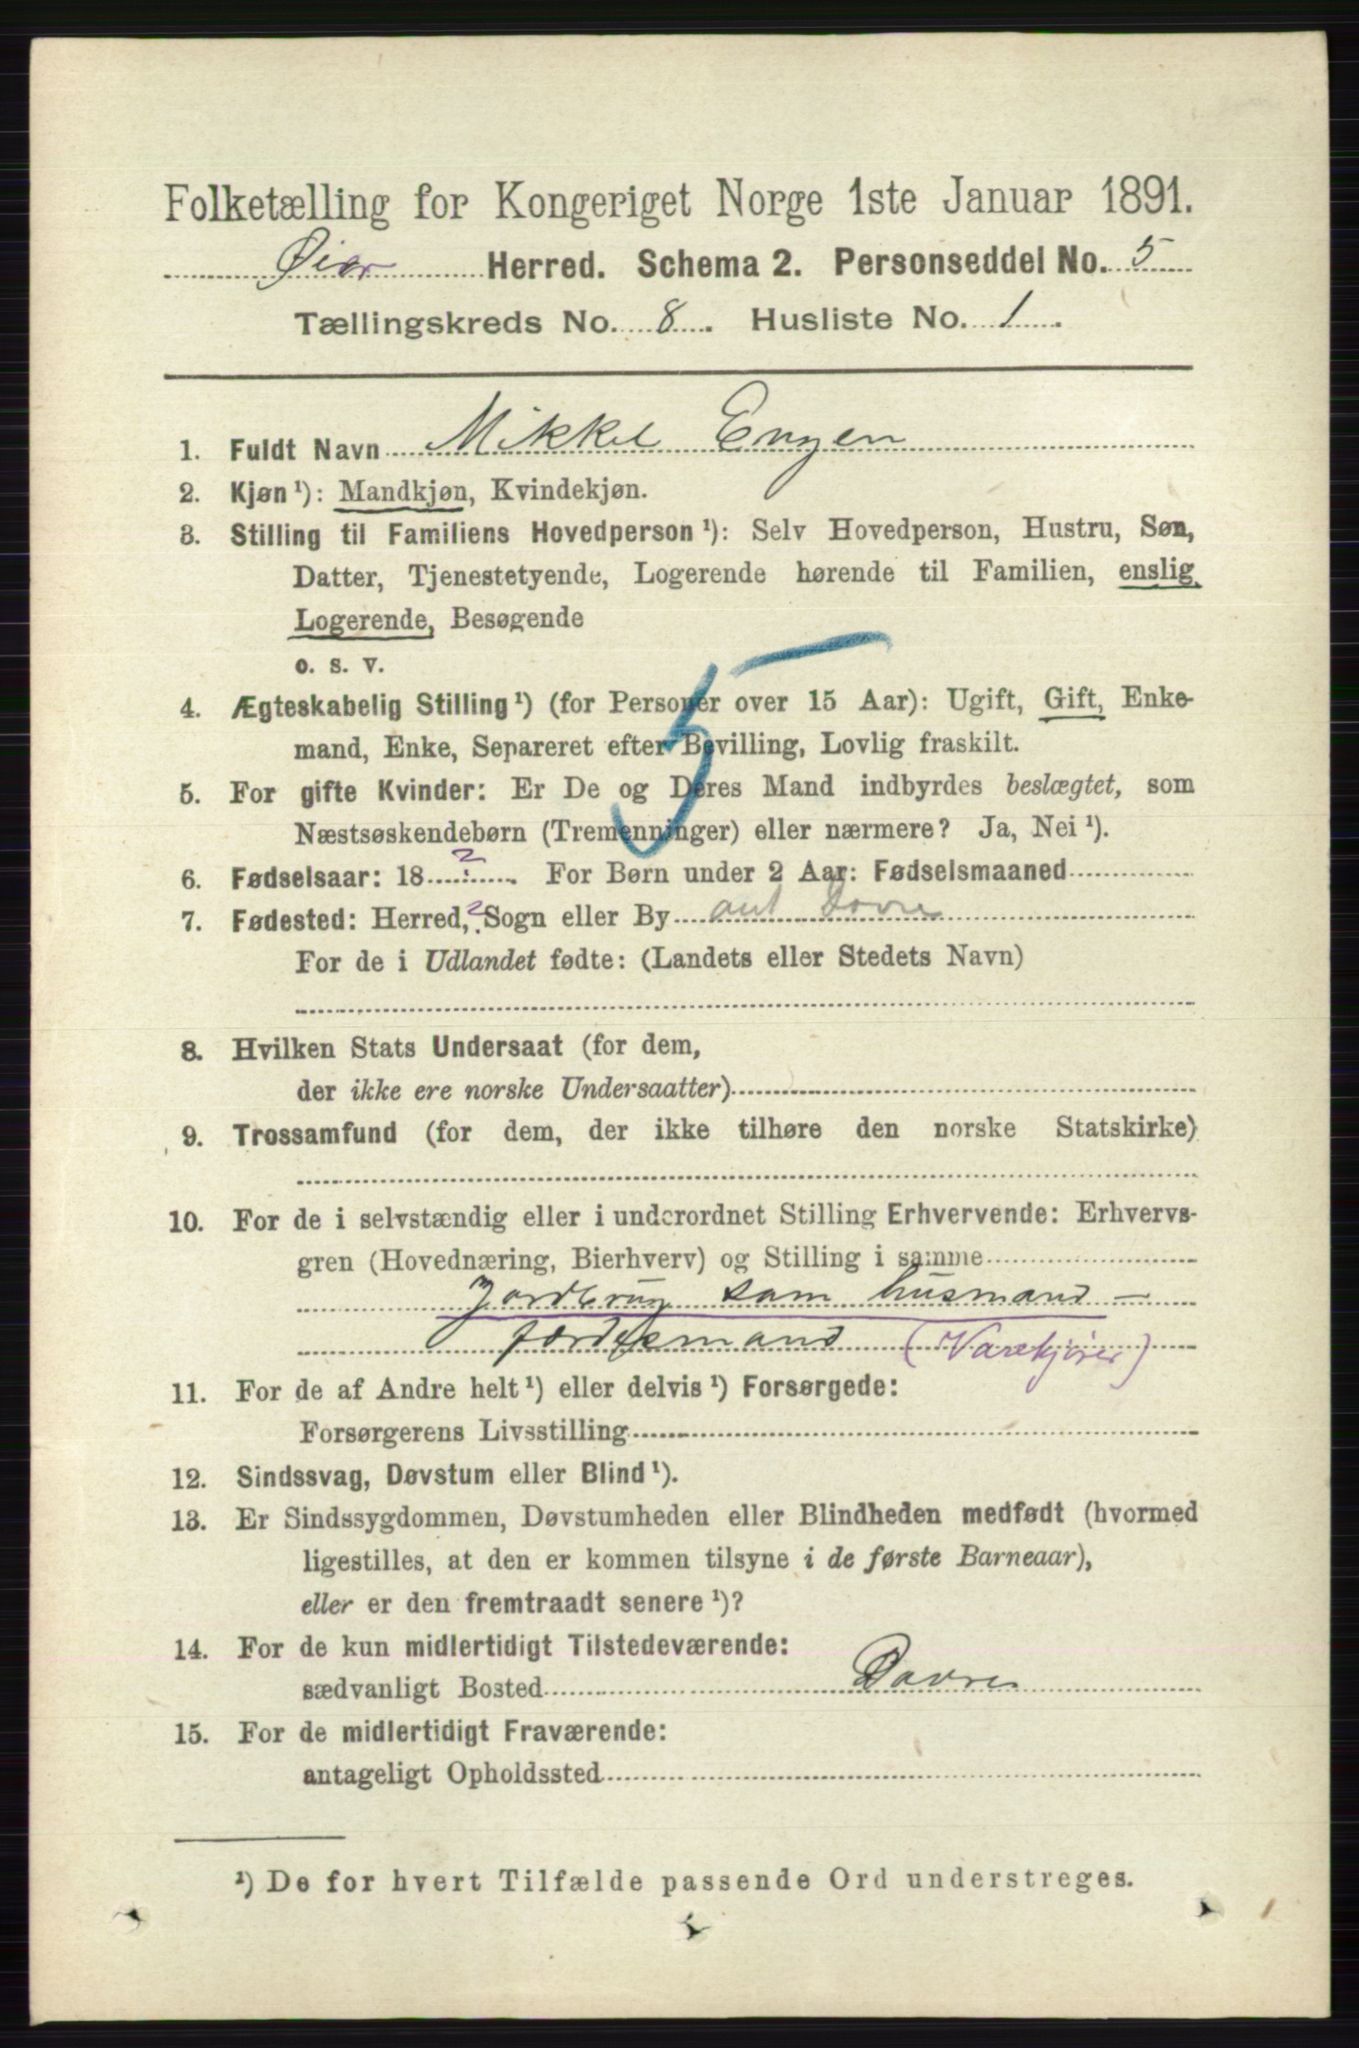 Folketælling for Kongeriget Norge 1ste Januar 1891.
Øier Herred. Schema 2. Personseddel No. 5
Tællingskreds No. 8. Husliste No. 1.
1. Fuldt Navn Mikkel Engen
2. Kjøn ¹): Mandkjøn, Kvindekjøn.
3. Stilling til Familiens Hovedperson ¹): Selv Hovedperson, Hustru, Søn,
Datter, Tjenestetyende, Logerende hørende til Familien, enslig
Logerende, Besøgende
o. s. v.
5
4. Ægteskabelig Stilling ¹) (for Personer over 15 Aar): Ugift, Gift, Enke-
mand, Enke, Separeret efter Bevilling, Lovlig fraskilt.
5. For gifte Kvinder: Er De og Deres Mand indbyrdes beslægtet, som
Næstsøskendebørn (Tremenninger) eller nærmere? Ja, Nei ¹).
6. Fødselsaar: 18 ? . For Børn under 2 Aar: Fødselsmaaned
7. Fødested: Herred, ? Sogn eller By ant Dovre
For de i Udlandet fødte: (Landets eller Stedets Navn)
8. Hvilken Stats Undersaat (for dem,
der ikke ere norske Undersaatter)
9. Trossamfund (for dem, der ikke tilhøre den norske Statskirke)
10. For de i selvstændig eller i underordnet Stilling Erhvervende: Erhvervs-
gren (Hovednæring, Bierhverv) og Stilling i samme
Jordbrug som husmand –
(Varekjører)
11. For de af Andre helt ¹) eller delvis ¹) Forsørgede:
Forsørgerens Livsstilling
12. Sindssvag, Døvstum eller Blind ¹).
13. Er Sindssygdommen, Døvstumheden eller Blindheden medfødt (hvormed
ligestilles, at den er kommen tilsyne i de første Barneaar),
eller er den fremtraadt senere ¹)?
14. For de kun midlertidigt Tilstedeværende:
sædvanligt Bosted Dovre
15. For de midlertidigt Fraværende:
antageligt Opholdssted
¹) De for hvert Tilfælde passende Ord understreges.